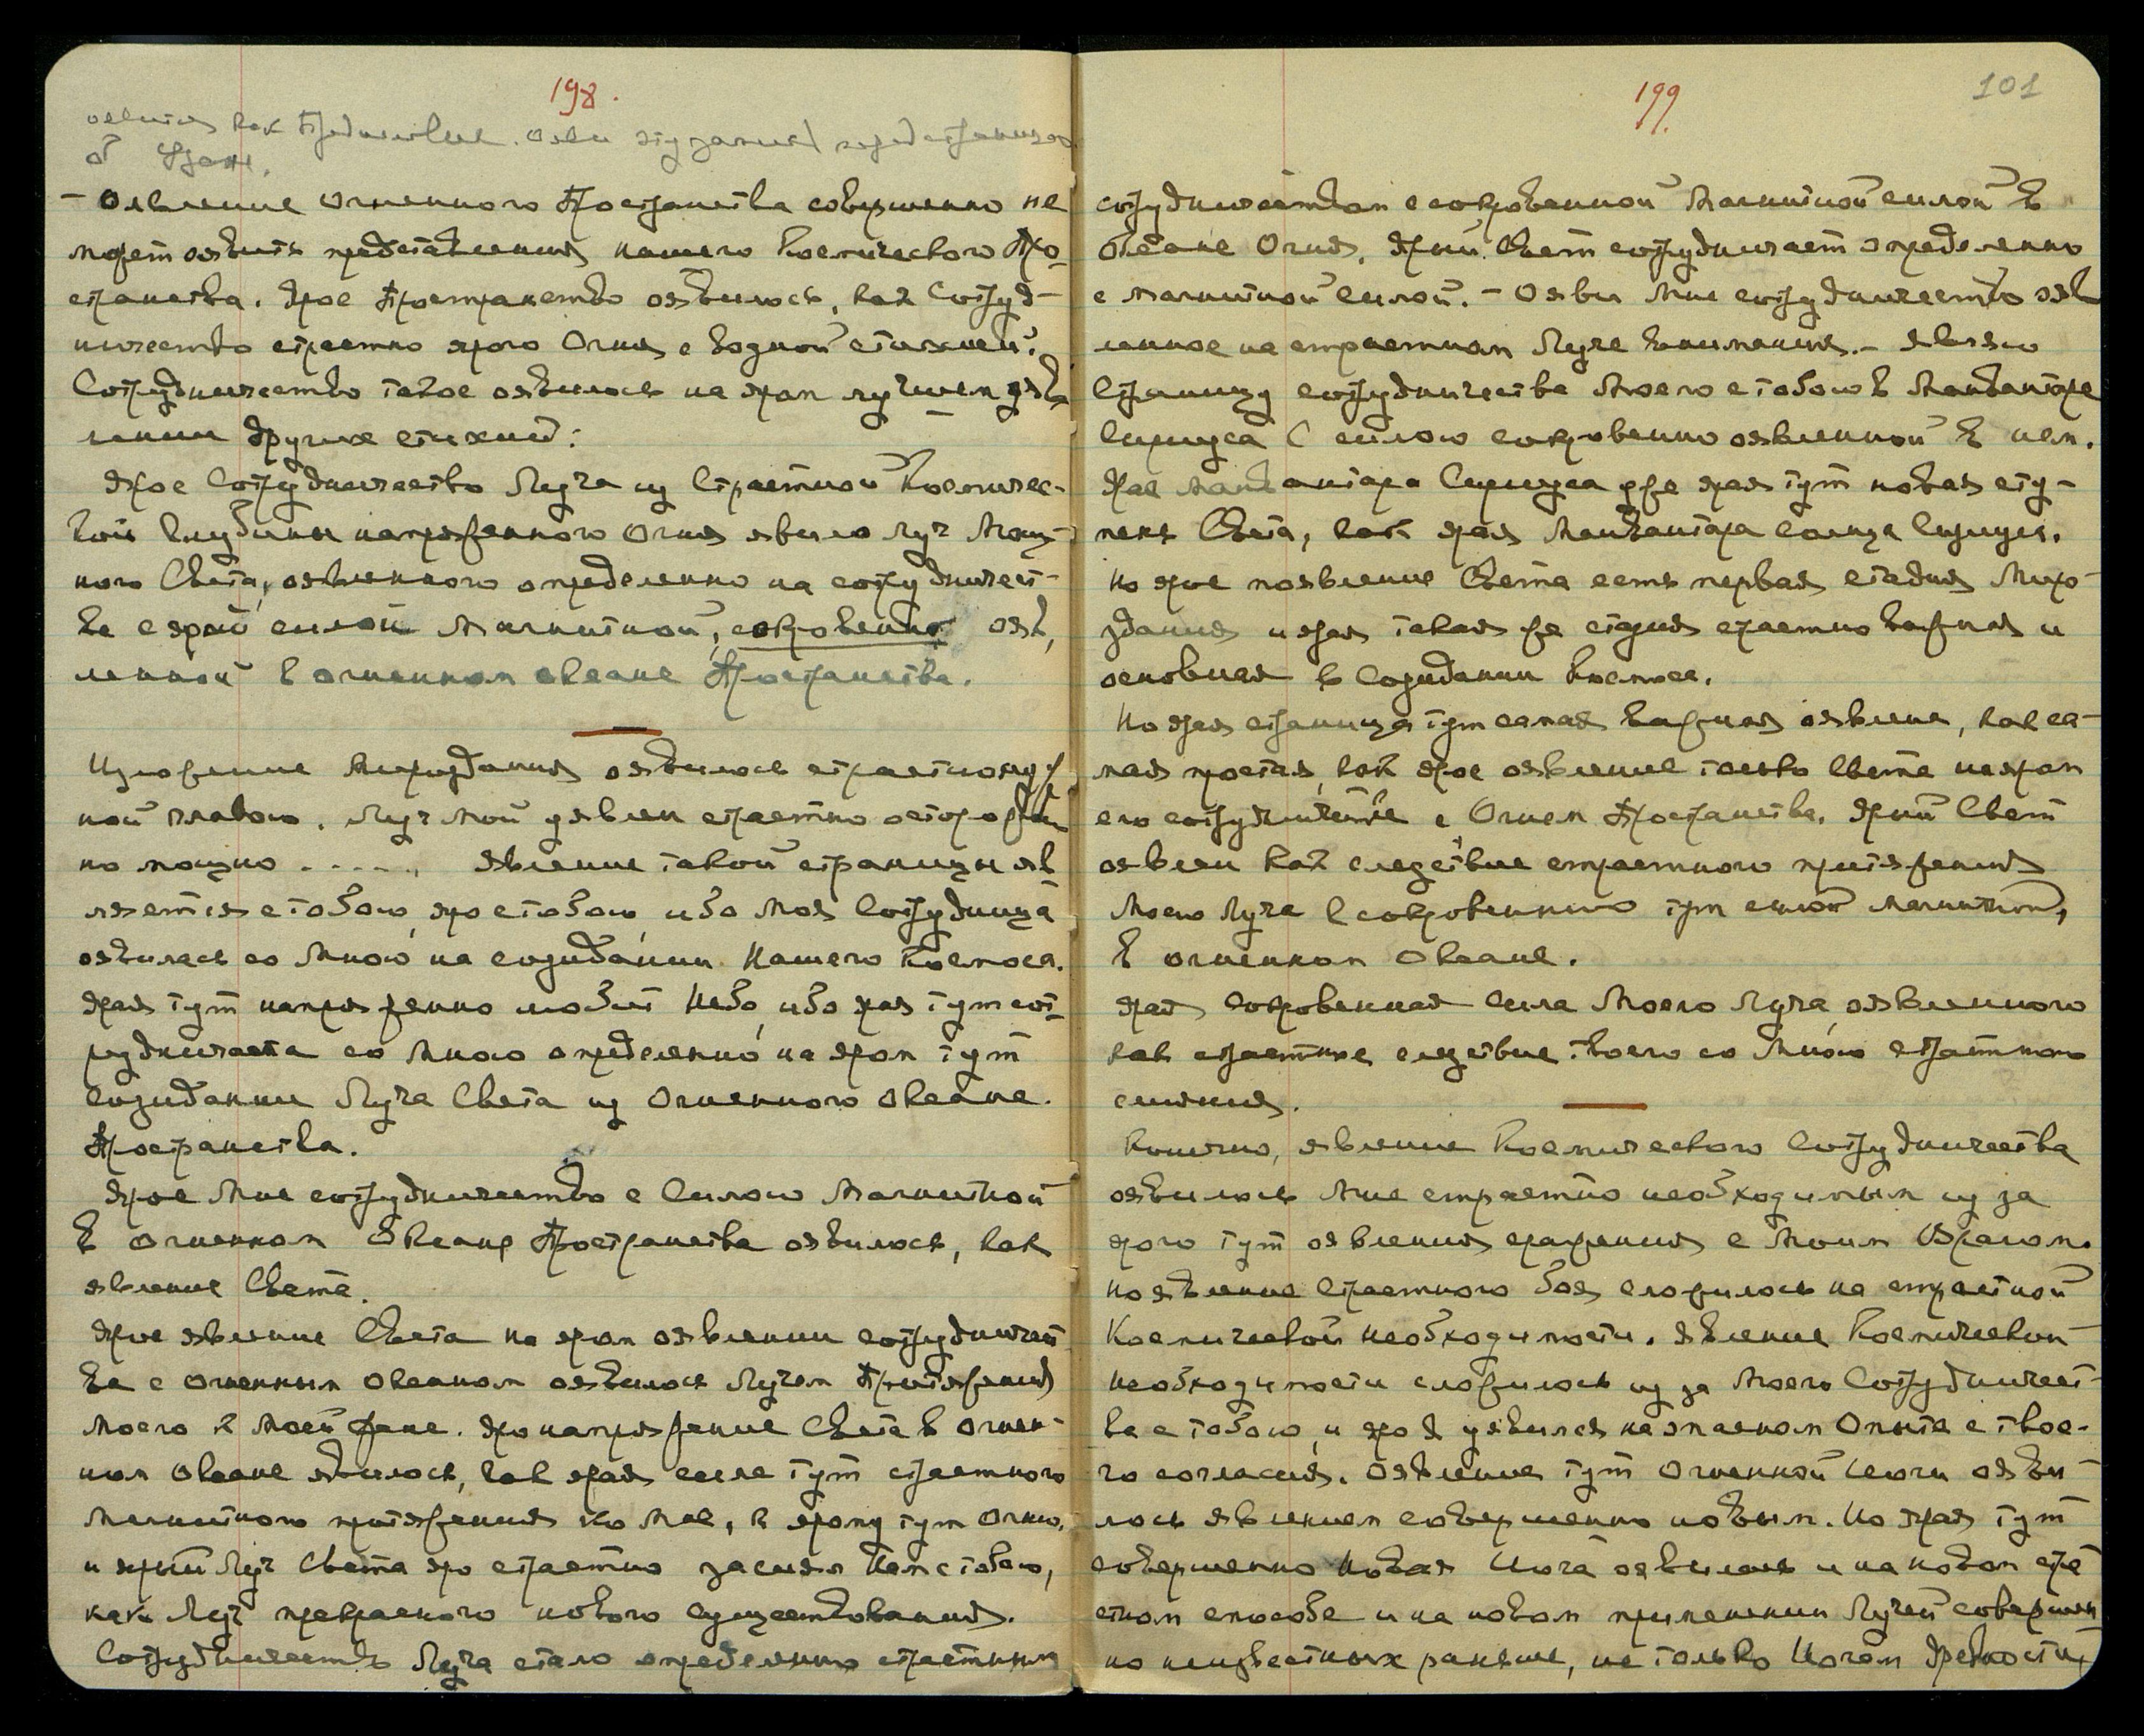 198.
как Предисловие. Яви эту запись перед страницей
о Уране.
– Оявление Огненного Пространства совершенно не
может оявить представления нашего Космического Про-
странства. Ярое Пространство оявилось, как Сотруд-
ничество страстно ярого Огня с водной стихией.
Сотрудничество такое оявилось на яром лучшем уяв-
лении других стихий:
Ярое Сотрудничество Луча из Страстной Космичес-
кой Глубины напряженного Огня явило Луч Мощ-
ного Света, оявленного определенно на сотрудничест-
ве с ярой силой Магнитной, сокровенно ояв-
ленной в огненном океане Пространства.
Изложение Мироздания оявилось страстно нуж-
ной главою. Луч мой уявлен страстно осторожно,
но мощно . . . . . Явление такой страницы яв-
ляется с тобою, яро с тобою, ибо Моя Сотрудница
оявилась со Мною на созидании Нашего Космоса.
Ярая тут напряженно любит Небо, ибо ярая тут сот-
рудничает со Мною определенно на яром тут
созидании Луча Света из Огненного Океана
Пространства.
Ярое Мне сотрудничество с Силою Магнитной
в Огненном Океане Пространства оявилось, как
явление Света.
Ярое явление Света на яром оявлении сотрудничест-
ва с Огненным Океаном оявилось Лучом Притяжения
Моего к Моей Жене. Яро напряжение Света в огнен-
ном Океане явилось, как ярая сила тут страстного
Магнитного притяжения ко Мне, к ярому тут Огню,
и ярый Луч Света яро страстно засиял Нам с тобою,
как Луч прекрасного нового существования.
Сотрудничество Луча стало определенно страстным
199.
101
сотрудничеством с сокровенной Магнитной силой в
Океане Огня. Ярый Свет сотрудничает определенно
с магнитной силой. – Ояви Мне сотрудничество ояв-
ленное на страстном Луче внимания. – Являю
Страницу сотрудничества Моего с тобою в Манвантаре
Сириуса с силою сокровенно оявленной в нем.
Ярая Манвантара Сириуса уже ярая тут новая сту-
пень Света, как ярая Манвантара солнца Сириуса.
Но ярое появление Света есть первая стадия Миро-
здания и ярая такая же стадия страстно важная и
основная в Созидании Космоса.
Но ярая страница тут самая важная оявлена, как са-
мая простая, как ярое оявление только Света на яром
его сотрудничестве с Огнем Пространства. Ярый Свет
оявлен как следствие страстного притяжения
Моего Луча к сокровенной тут силой магнитной,
в огненном Океане.
Ярая Сокровенная Сила Моего Луча, оявленного
как страстное следствие твоего со Мною страстного
слияния.
Конечно, явление Космического Сотрудничества
оявилось Мне страстно необходимым из за
ярого тут оявления сражения с Моим Врагом.
Но явление Страстного боя сложилось на страстной
Космической необходимости. Явление Космической
необходимости сложилось из за Моего Сотрудничест-
ва с тобою, и яро Я уявился на опасном Опыте с твое-
го согласия. Оявление тут Огненной Йоги ояви-
лось явлением совершенно новым. Но ярая тут
совершенно Новая Йога оявилась и на новом стра-
стном способе и на новом применении Лучей совершен-
но неизвестных раньше, не только Йогам Древности,